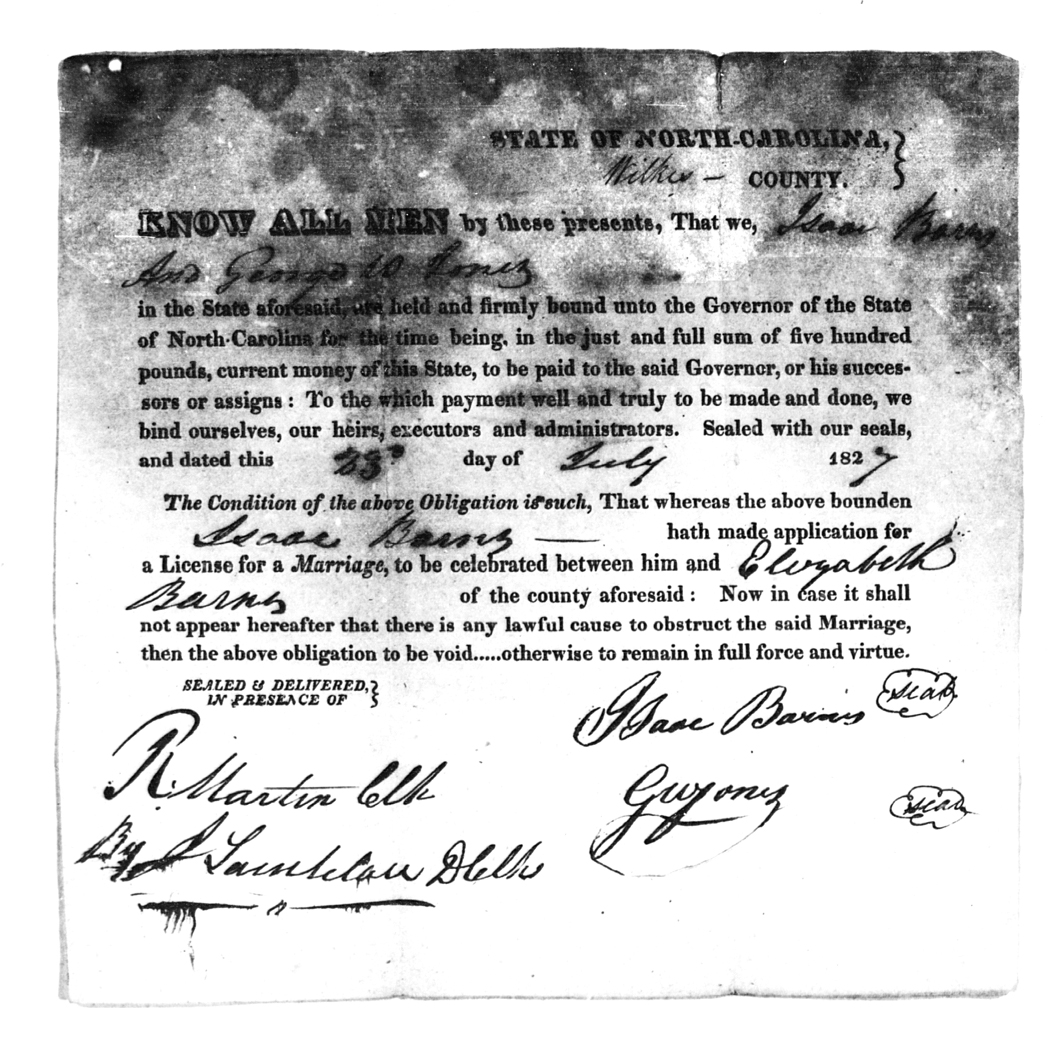 STATE OF NORTH-CAROLINA,
Wilkes — COUNTY.
KNOW ALL MEN by these presents, That we, Isaac Barns
And George W Jones
in the State aforesaid, are held and firmly bound unto the Governor of the State
of North-Carolina for the time being, in the just and full sum of five hundred
pounds, current money of this State, to be paid to the said Governor, or his succes-
sors or assigns: To the which payment well and truly to be made and done, we
bind ourselves, our heirs, executors and administrators. Sealed with our seals,
and dated this 23d day of July 1827
The Condition of the above Obligation is such, That whereas the above bounden
Isaac Barns — hath made application for
a License for a Marriage, to be celebrated between him and Elizabeth
Barns of the county aforesaid: Now in case it shall
not appear hereafter that there is any lawful cause to obstruct the said Marriage,
then the above obligation to be void.....otherwise to remain in full force and virtue.
SEALED & DELIVERED,
IN PRESENCE OF
Isaac Barns seal
R. Martin Clk
G W Jones seal
By D Clk